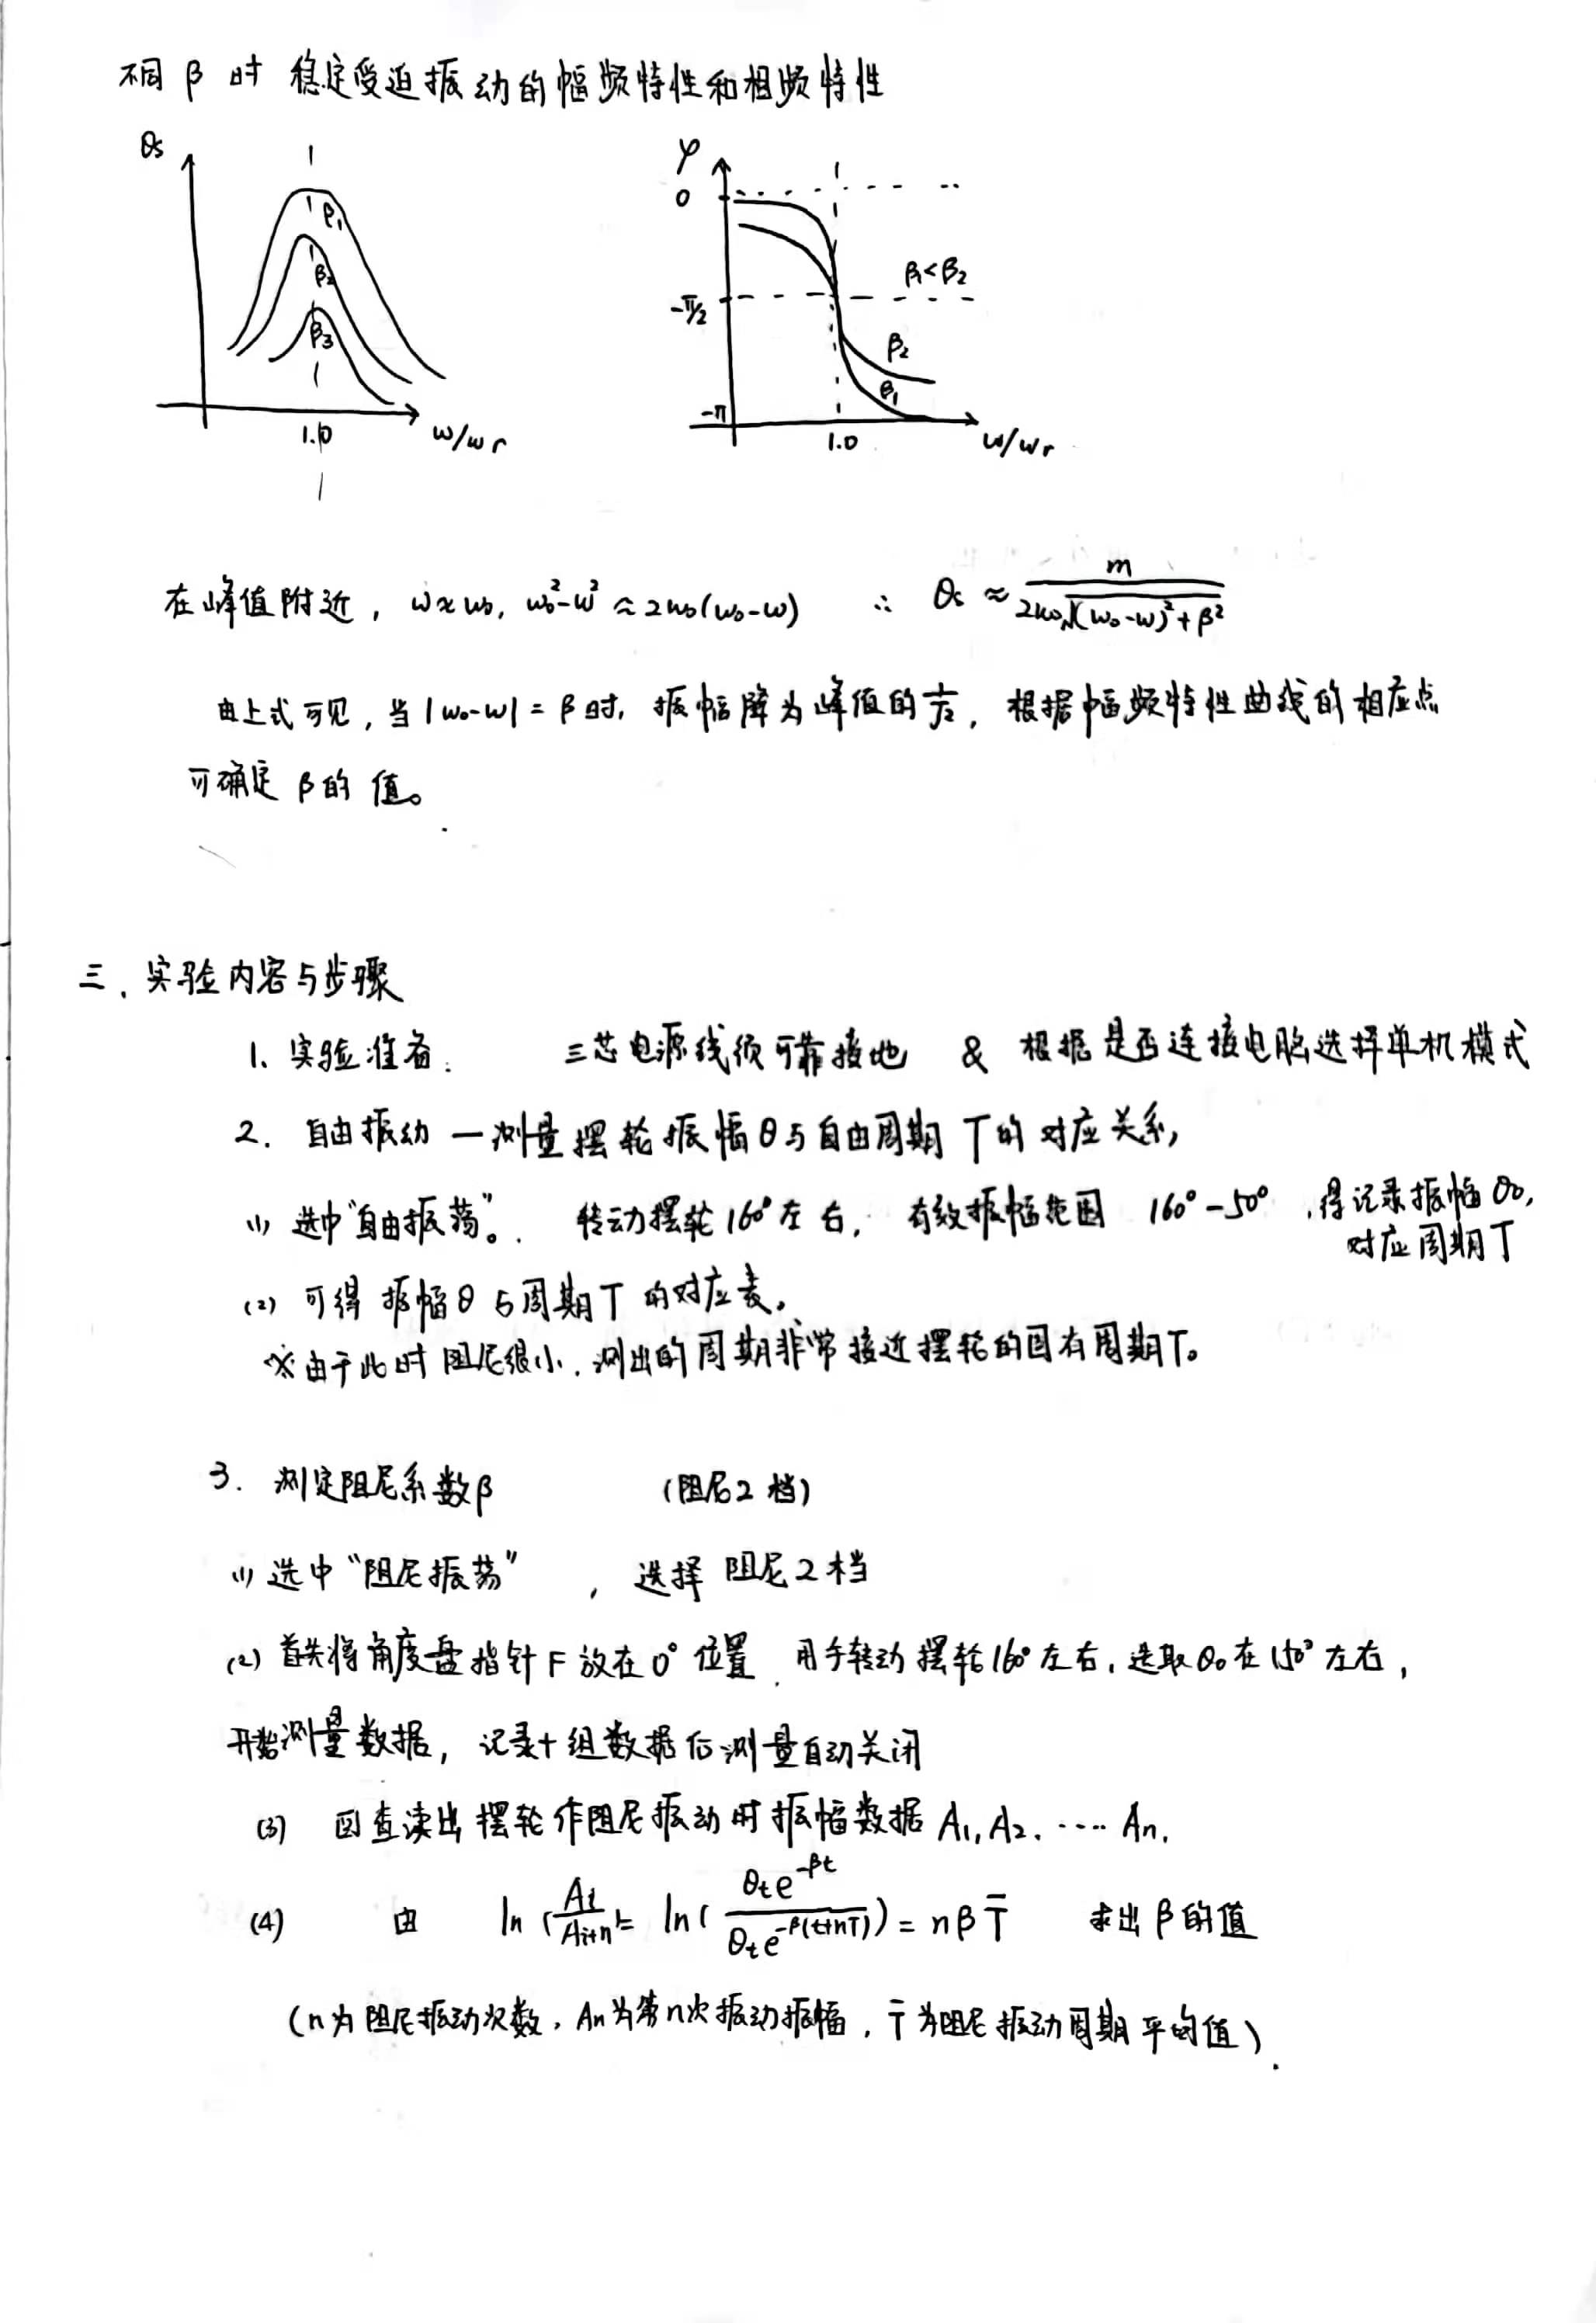 不同 β 时 稳定受迫振动的幅频特性和相频特性
θs
β₁
β₂
β₃
1.0
ω/ωr
φ
0
-π/2
-π
β₁<β₂
β₂
β₁
1.0
ω/ωr
在峰值附近, ω≈ω₀, ω₀²-ω²≈2ω₀(ω₀-ω) ∴ θs ≈ m/(2ω₀√((ω₀-ω)²+β²))
由上式可见, 当|ω₀-ω|= β时, 振幅降为峰值的1/√2, 根据幅频特性曲线的相应点
可确定 β的 值。
三、实验内容与步骤
1. 实验准备: 三芯电源线须可靠接地 & 根据是否连接电脑选择单机模式
2. 自由振动 — 测量摆轮振幅θ与自由周期T的对应关系,
(1) 选中"自由振荡"。 转动摆轮160°左右, 有效振幅范围 160°-50°, 得记录振幅θ₀,
对应周期T
(2) 可得振幅θ与周期T的对应表。
※由于此时阻尼很小, 测出的周期非常接近摆轮的固有周期T。
3. 测定阻尼系数β (阻尼2档)
(1) 选中"阻尼振荡" , 选择 阻尼2档
(2) 首先将角度盘指针F放在0°位置. 用手转动摆轮160°左右, 选取θ₀在150°左右,
开始测量数据, 记录十组数据后测量自动关闭
(3) 回查读出摆轮作阻尼振动时振幅数据 A₁, A₂, ···· An.
(4) 由 ln(Ai/Ai+n)= ln(θte^-βt/θte^-β(t+nT)) = nβT̄ 求出β的值
(n为阻尼振动次数, An为第n次振动振幅, T̄为阻尼振动周期平均值).